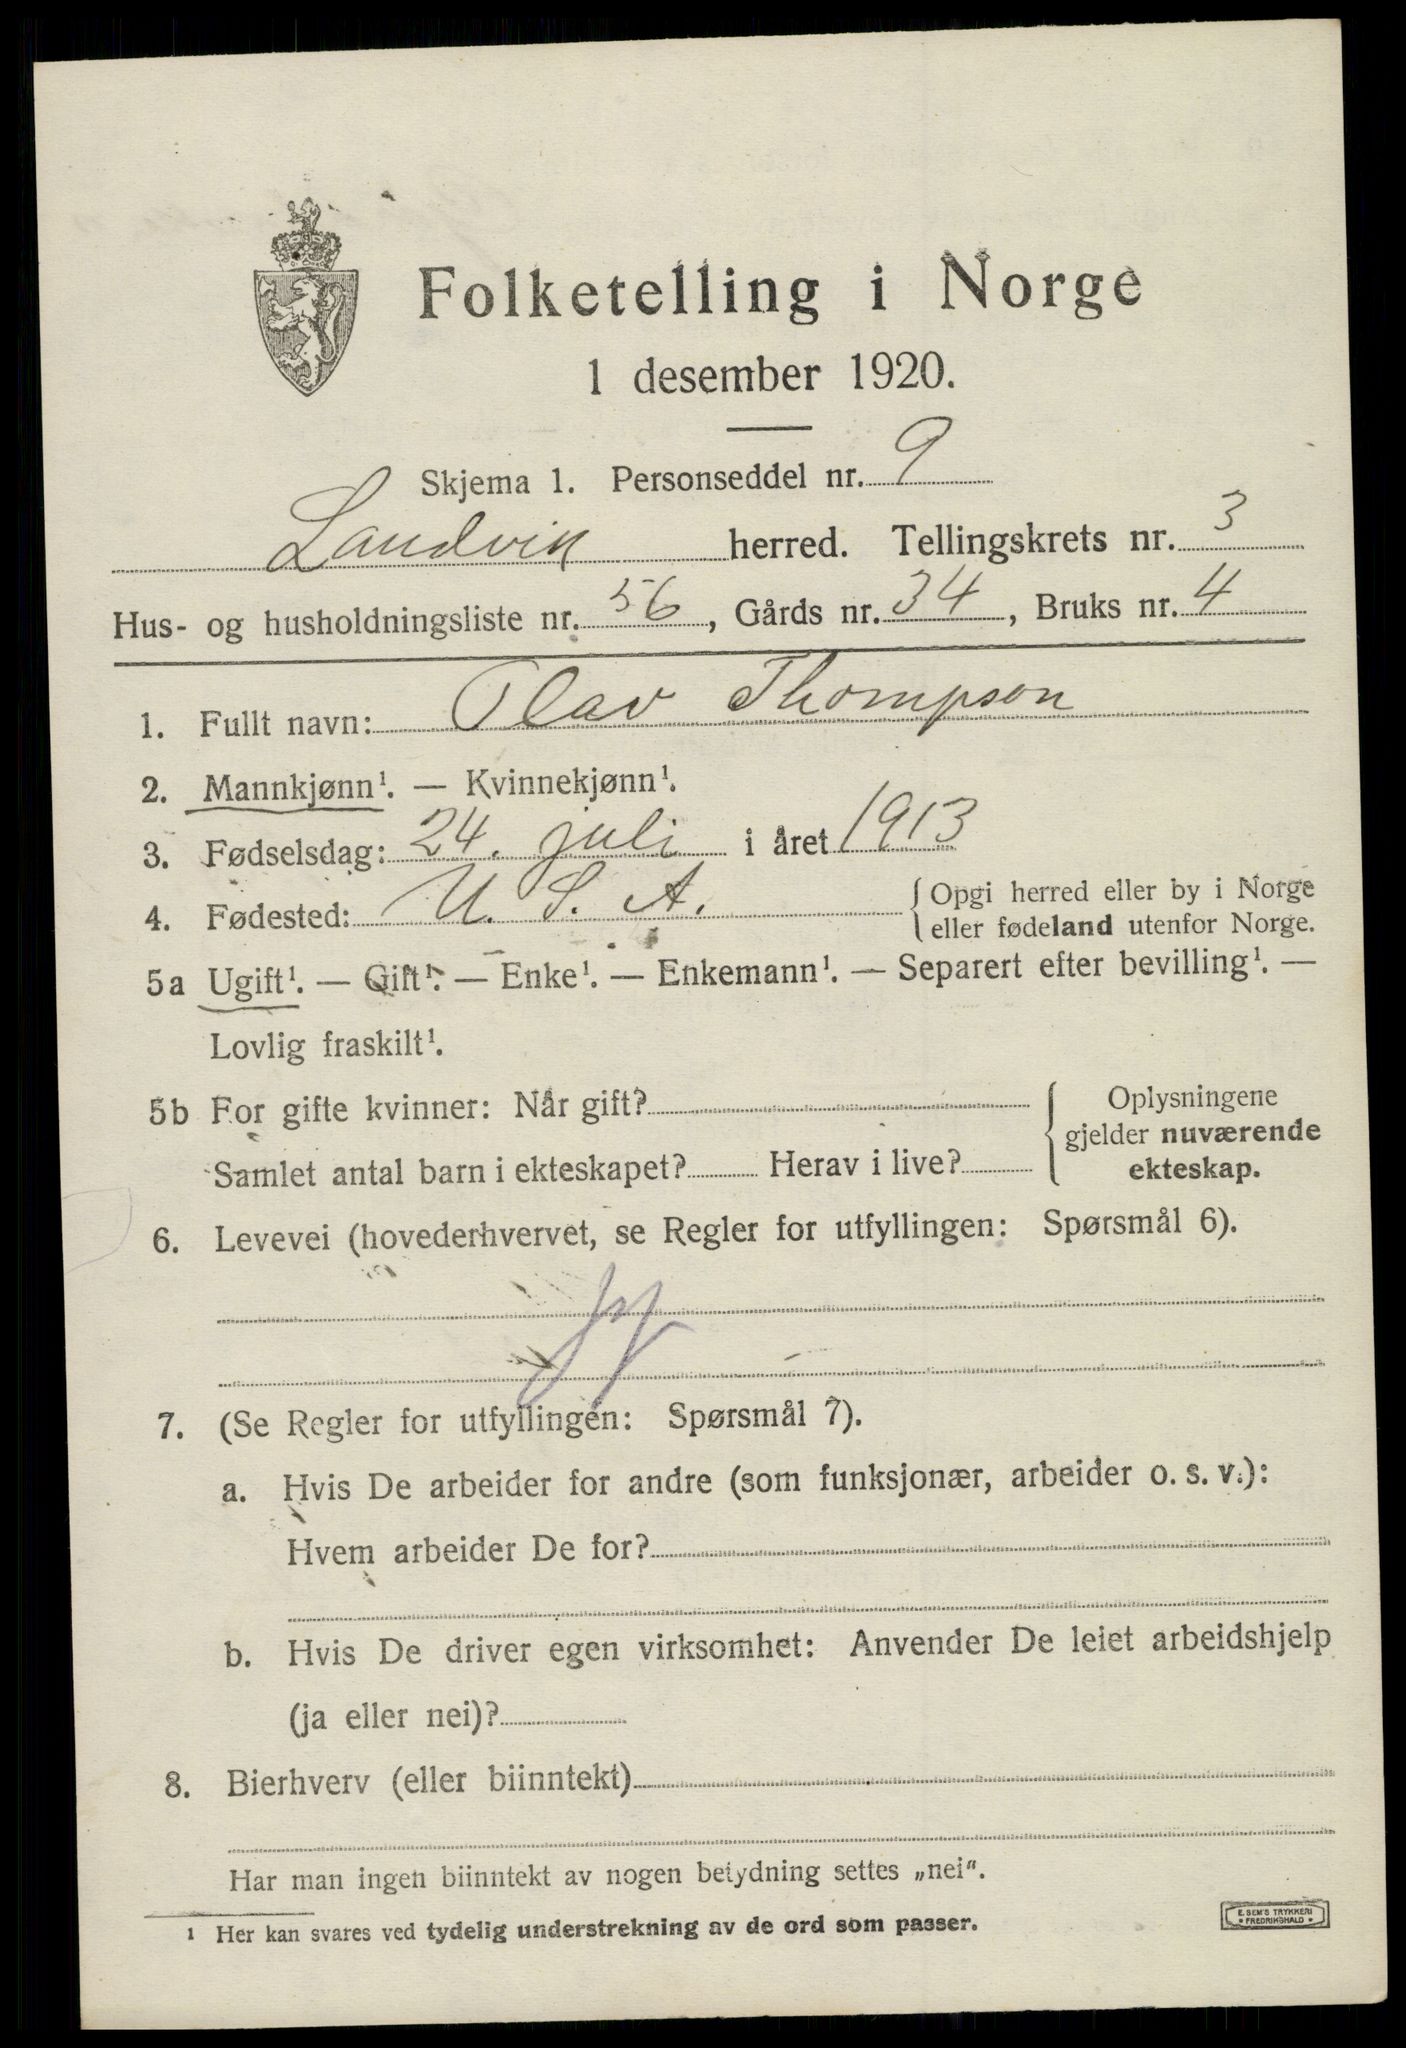 Folketelling i Norge
1 desember 1920.
Skjema 1. Personseddel nr. 9
Landvik herred. Tellingskrets nr. 3
Hus- og husholdningsliste nr. 56, Gårds nr. 34, Bruks nr. 4
1. Fullt navn: Olav Thompson
2. Mannkjønn¹. — Kvinnekjønn¹.
3. Fødselsdag: 24. juli i året 1913
4. Fødested: U. S. A. { Opgi herred eller by i Norge
eller fødeland utenfor Norge.
5a Ugift¹. — Gift¹. — Enke¹. — Enkemann¹. — Separert efter bevilling¹. —
Lovlig fraskilt¹.
5b For gifte kvinner: Når gift?
Samlet antal barn i ekteskapet? Herav i live?
{ Oplysningene
gjelder nuværende
ekteskap.
6. Levevei (hovederhvervet, se Regler for utfyllingen: Spørsmål 6).
7. (Se Regler for utfyllingen: Spørsmål 7).
a. Hvis De arbeider for andre (som funksjonær, arbeider o. s. v.):
Hvem arbeider De for?
b. Hvis De driver egen virksomhet: Anvender De leiet arbeidshjelp
(ja eller nei)?
8. Bierhverv (eller biinntekt)
Har man ingen biinntekt av nogen betydning settes „nei“.
¹ Her kan svares ved tydelig understrekning av de ord som passer.
E. SEM'S TRYKKERI
* FREDRIKSHALD *